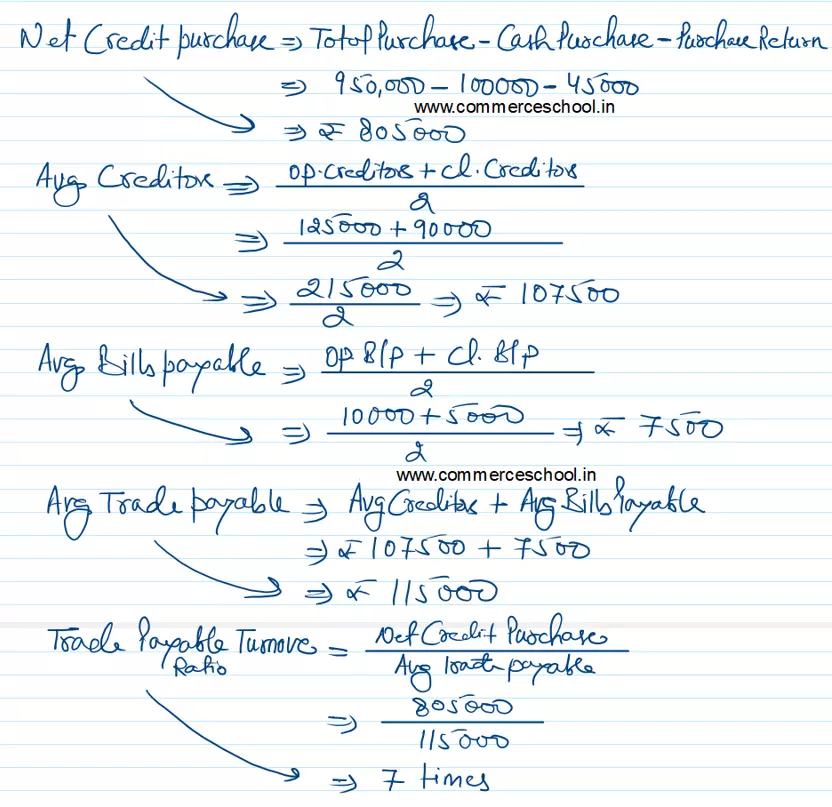 Net Credit purchase ⇒ Totof Purchase - Cash Purchase - Purchase Return
⇒ 950,000 - 100000 - 45000
www.commerceschool.in
⇒ ₹ 805000
Avg Creditors ⇒ op.creditors + cl. Creditors
2
⇒ 125000 + 90000
2
⇒ 215000 ⇒ ₹ 107500
2
Avg Bills payable ⇒ op B/p + cl. B/p
2
⇒ 10000 + 5000 ⇒ ₹ 7500
2
www.commerceschool.in
Avg Trade payable ⇒ Avg Creditors + Avg Bills Payable
⇒ ₹ 107500 + 7500
⇒ ₹ 115000
Trade Payable Turnove = Net Credit Purchase
Ratio Avg trade payable
⇒ 805000
115000
⇒ 7 times